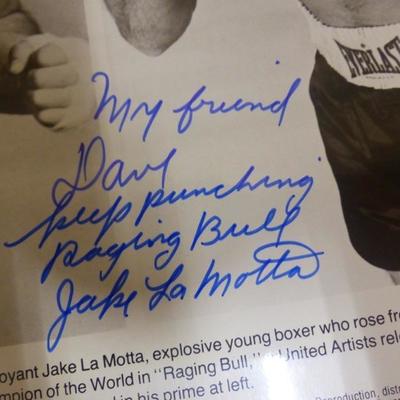 EVERLAST
My friend
Dave
keep punching
Raging Bull
Jake La Motta
oyant Jake La Motta, explosive young boxer who rose fr
mpion of the World in "Raging Bull," United Artists rel
in his prime at left.
Reproduction, dist